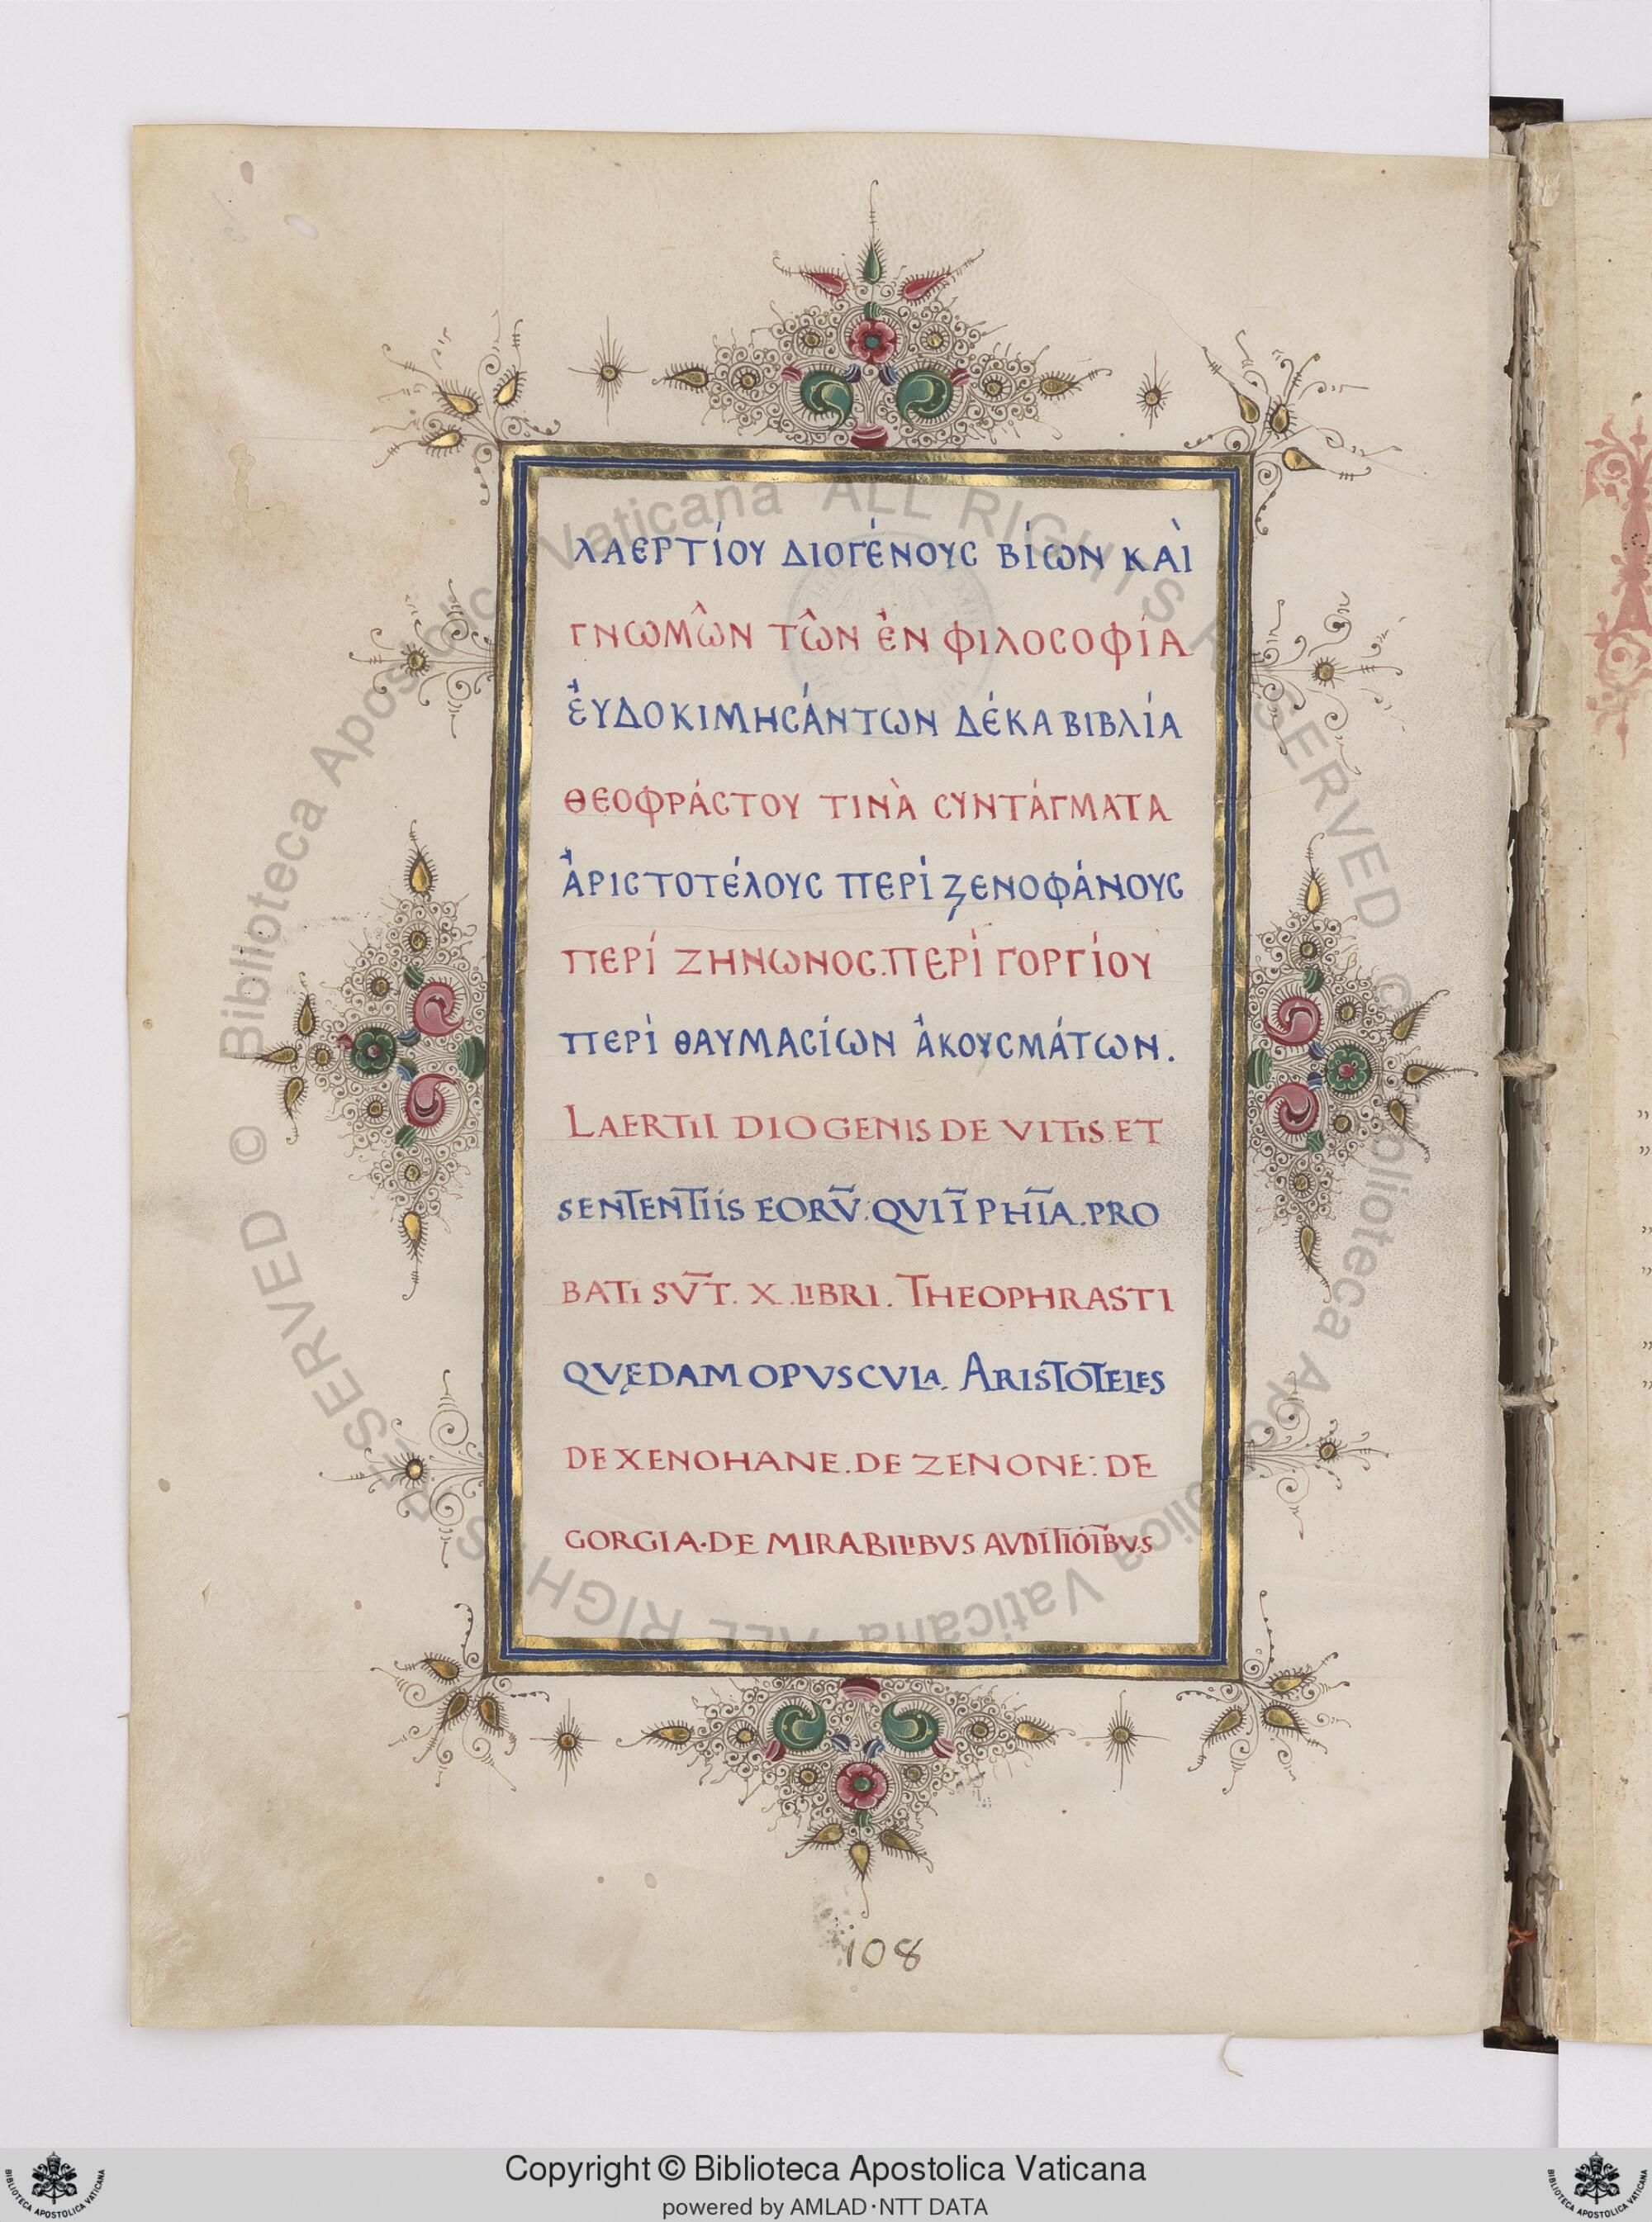 ΛΑΕΡΤΊΟΥ ΔΙΟΓΈΝΟΥϹ ΒΊΩΝ ΚΑῚ
ΓΝΩΜΩ͂Ν ΤΩ͂Ν ἘΝ ΦΙΛΟϹΟΦΊΑ
ἘΥΔΟΚΙΜΗϹΆΝΤΩΝ ΔΈΚΑ ΒΙΒΛΊΑ
ΘΕΟΦΡΆϹΤΟΥ ΤΙΝᾺ ϹΥΝΤΆΓΜΑΤΑ
ἈΡΙϹΤΟΤΈΛΟΥϹ ΠΕΡΊ ΞΕΝΟΦΆΝΟΥϹ
ΠΕΡΊ ΖΗΝΩΝΟϹ.ΠΕΡΊ ΓΟΡΓΊΟΥ
ΠΕΡΊ ΘΑΥΜΑϹΊΩΝ ἈΚΟΥϹΜΆΤΩΝ.
LAERTII DIOGENIS DE VITIS ET
SENTENTIIS EORV̄.QVI Ī PHĪA.PRO
BATI SV̄T. X.LIBRI. THEOPHRASTI
QVĘDAM OPVSCVLA. ARISTOTELES
DE XENOHANE.DE ZENONE: DE
GORGIA.DE MIRABILIBVS AVDITIOĪBVS
108
© Biblioteca Apostolica Vaticana ALL RIGHTS RESERVED
© Biblioteca Apostolica Vaticana ALL RIGHTS RESERVED
Copyright © Biblioteca Apostolica Vaticana
powered by AMLAD·NTT DATA
BIBLIOTECA APOSTOLICA VATICANA
BIBLIOTECA APOSTOLICA VATICANA